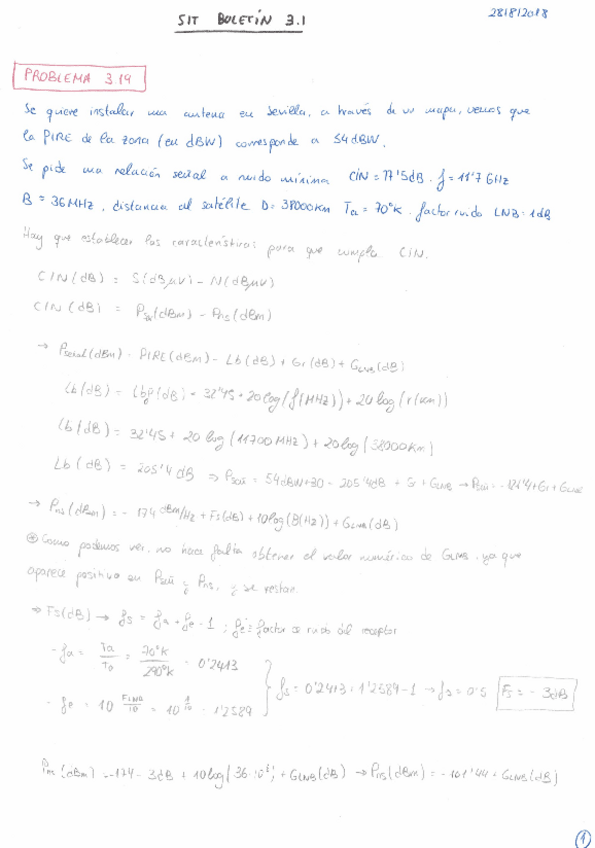 SIT BOLETÍN 3.1
28/8/2018
PROBLEMA 3.19
Se quiere instalar una antena en Sevilla, a través de un mapa, vemos que
la PIRE de la zona (en dBW) corresponde a 54dBW.
Se pide una relación señal a ruido mínima C/N = 17'5dB. f = 11'7 GHz
B = 36MHz, distancia al satélite D = 38000Km Ta = 70°K. factor ruido LNB = 1dB
Hay que establecer las características para que cumpla C/N.
C/N (dB) = S(dBμV) - N(dBμV)
C/N (dB) = Psñ(dBm) - Pns(dBm)
→ Pseñal(dBm) = PIRE(dBm) - Lb(dB) + Gr(dB) + GLNB(dB)
Lb(dB) = Lbf(dB) = 32'45 + 20log(f(MHz)) + 20log(r(Km))
Lb(dB) = 32'45 + 20 log(11700MHz) + 20log(38000Km)
Lb(dB) = 205'4 dB ⇒ Pseñ = 54dBW+30 - 205'4dB + Gr + GLNB → Pseñ = -121'4+Gr+GLNB
→ Pns(dBm) = -174 dBm/Hz + Fs(dB) + 10log(B(Hz)) + GLNB(dB)
⊛ Como podemos ver, no hace falta obtener el valor numérico de GLNB, ya que
aparece positivo en Pseñ y Pns, y se restan.
⇒ Fs(dB) → fs = fa + fe - 1 ; fe = factor de ruido del receptor
- fa = Ta/T0 = 70°K/290°K = 0'2413
- fe = 10^(FLNB/10) = 10^(1/10) = 1'2589
fs = 0'2413 + 1'2589 - 1 → fs = 0'5 Fs = -3dB
Pns(dBm) = -174 - 3dB + 10log(36·10⁶) + GLNB(dB) → Pns(dBm) = -101'44 + GLNB(dB)
1